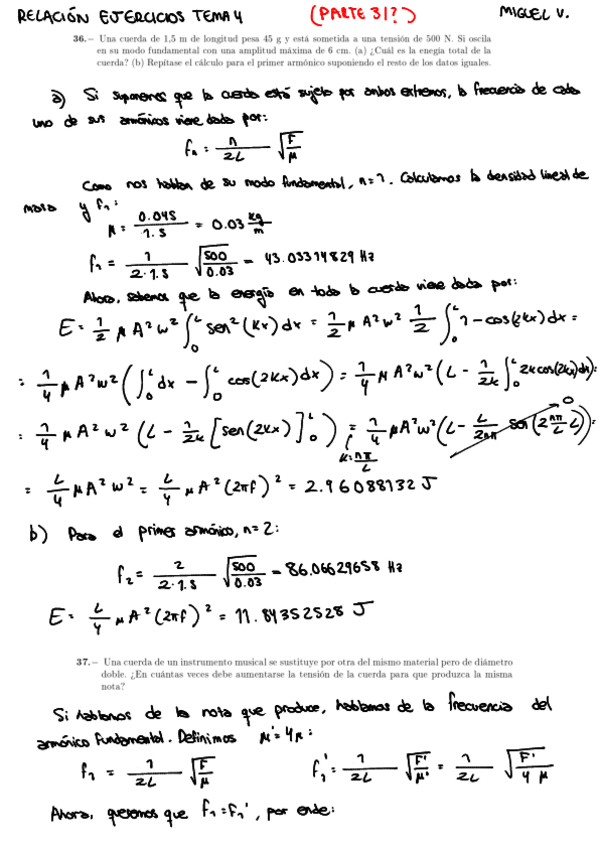 RELACIÓN EJERCICIOS TEMA 4 (PARTE 31?) MIGUEL V.
36.– Una cuerda de 1,5 m de longitud pesa 45 g y está sometida a una tensión de 500 N. Si oscila
en su modo fundamental con una amplitud máxima de 6 cm. (a) ¿Cuál es la enegía total de la
cuerda? (b) Repítase el cálculo para el primer armónico suponiendo el resto de los datos iguales.
a) Si suponemos que la cuerda está sujeta por ambos extremos, la frecuencia de cada
uno de sus armónicos viene dada por:
fₙ = n/2L √(F/μ)
Como nos hablan de su modo fundamental, n=1. Calculamos la densidad lineal de
masa y f₁:
μ = 0.045/1.5 = 0.03 kg/m
f₁ = 1/2·1.5 √(500/0.03) = 43.03314829 Hz
Ahora, sabemos que la energía en toda la cuerda viene dada por:
E = 1/2 μ A² ω² ∫₀ᴸ sen²(kx) dx = 1/2 μ A² ω² 1/2 ∫₀ᴸ 1 - cos(2kx) dx =
= 1/4 μ A² ω² (∫₀ᴸ dx - ∫₀ᴸ cos(2kx) dx) = 1/4 μ A² ω² (L - 1/2k ∫₀ᴸ 2k cos(2kx) dx) =
= 1/4 μ A² ω² (L - 1/2k [sen(2kx)]₀ᴸ) = 1/4 μ A² ω² (L - L/2nπ sen(2 nπ/L L)) = 0
k = nπ/L
= L/4 μ A² ω² = L/4 μ A² (2πf)² = 2.96088132 J
b) Para el primer armónico, n=2:
f₂ = 2/2·1.5 √(500/0.03) = 86.06629658 Hz
E = L/4 μ A² (2πf)² = 11.84352528 J
37.– Una cuerda de un instrumento musical se sustituye por otra del mismo material pero de diámetro
doble. ¿En cuántas veces debe aumentarse la tensión de la cuerda para que produzca la misma
nota?
Si hablamos de la nota que produce, hablamos de la frecuencia del
armónico fundamental. Definimos μ' = 4μ:
f₁ = 1/2L √(F/μ) f₁' = 1/2L √(F'/μ') = 1/2L √(F'/4μ)
Ahora, queremos que f₁ = f₁', por ende: